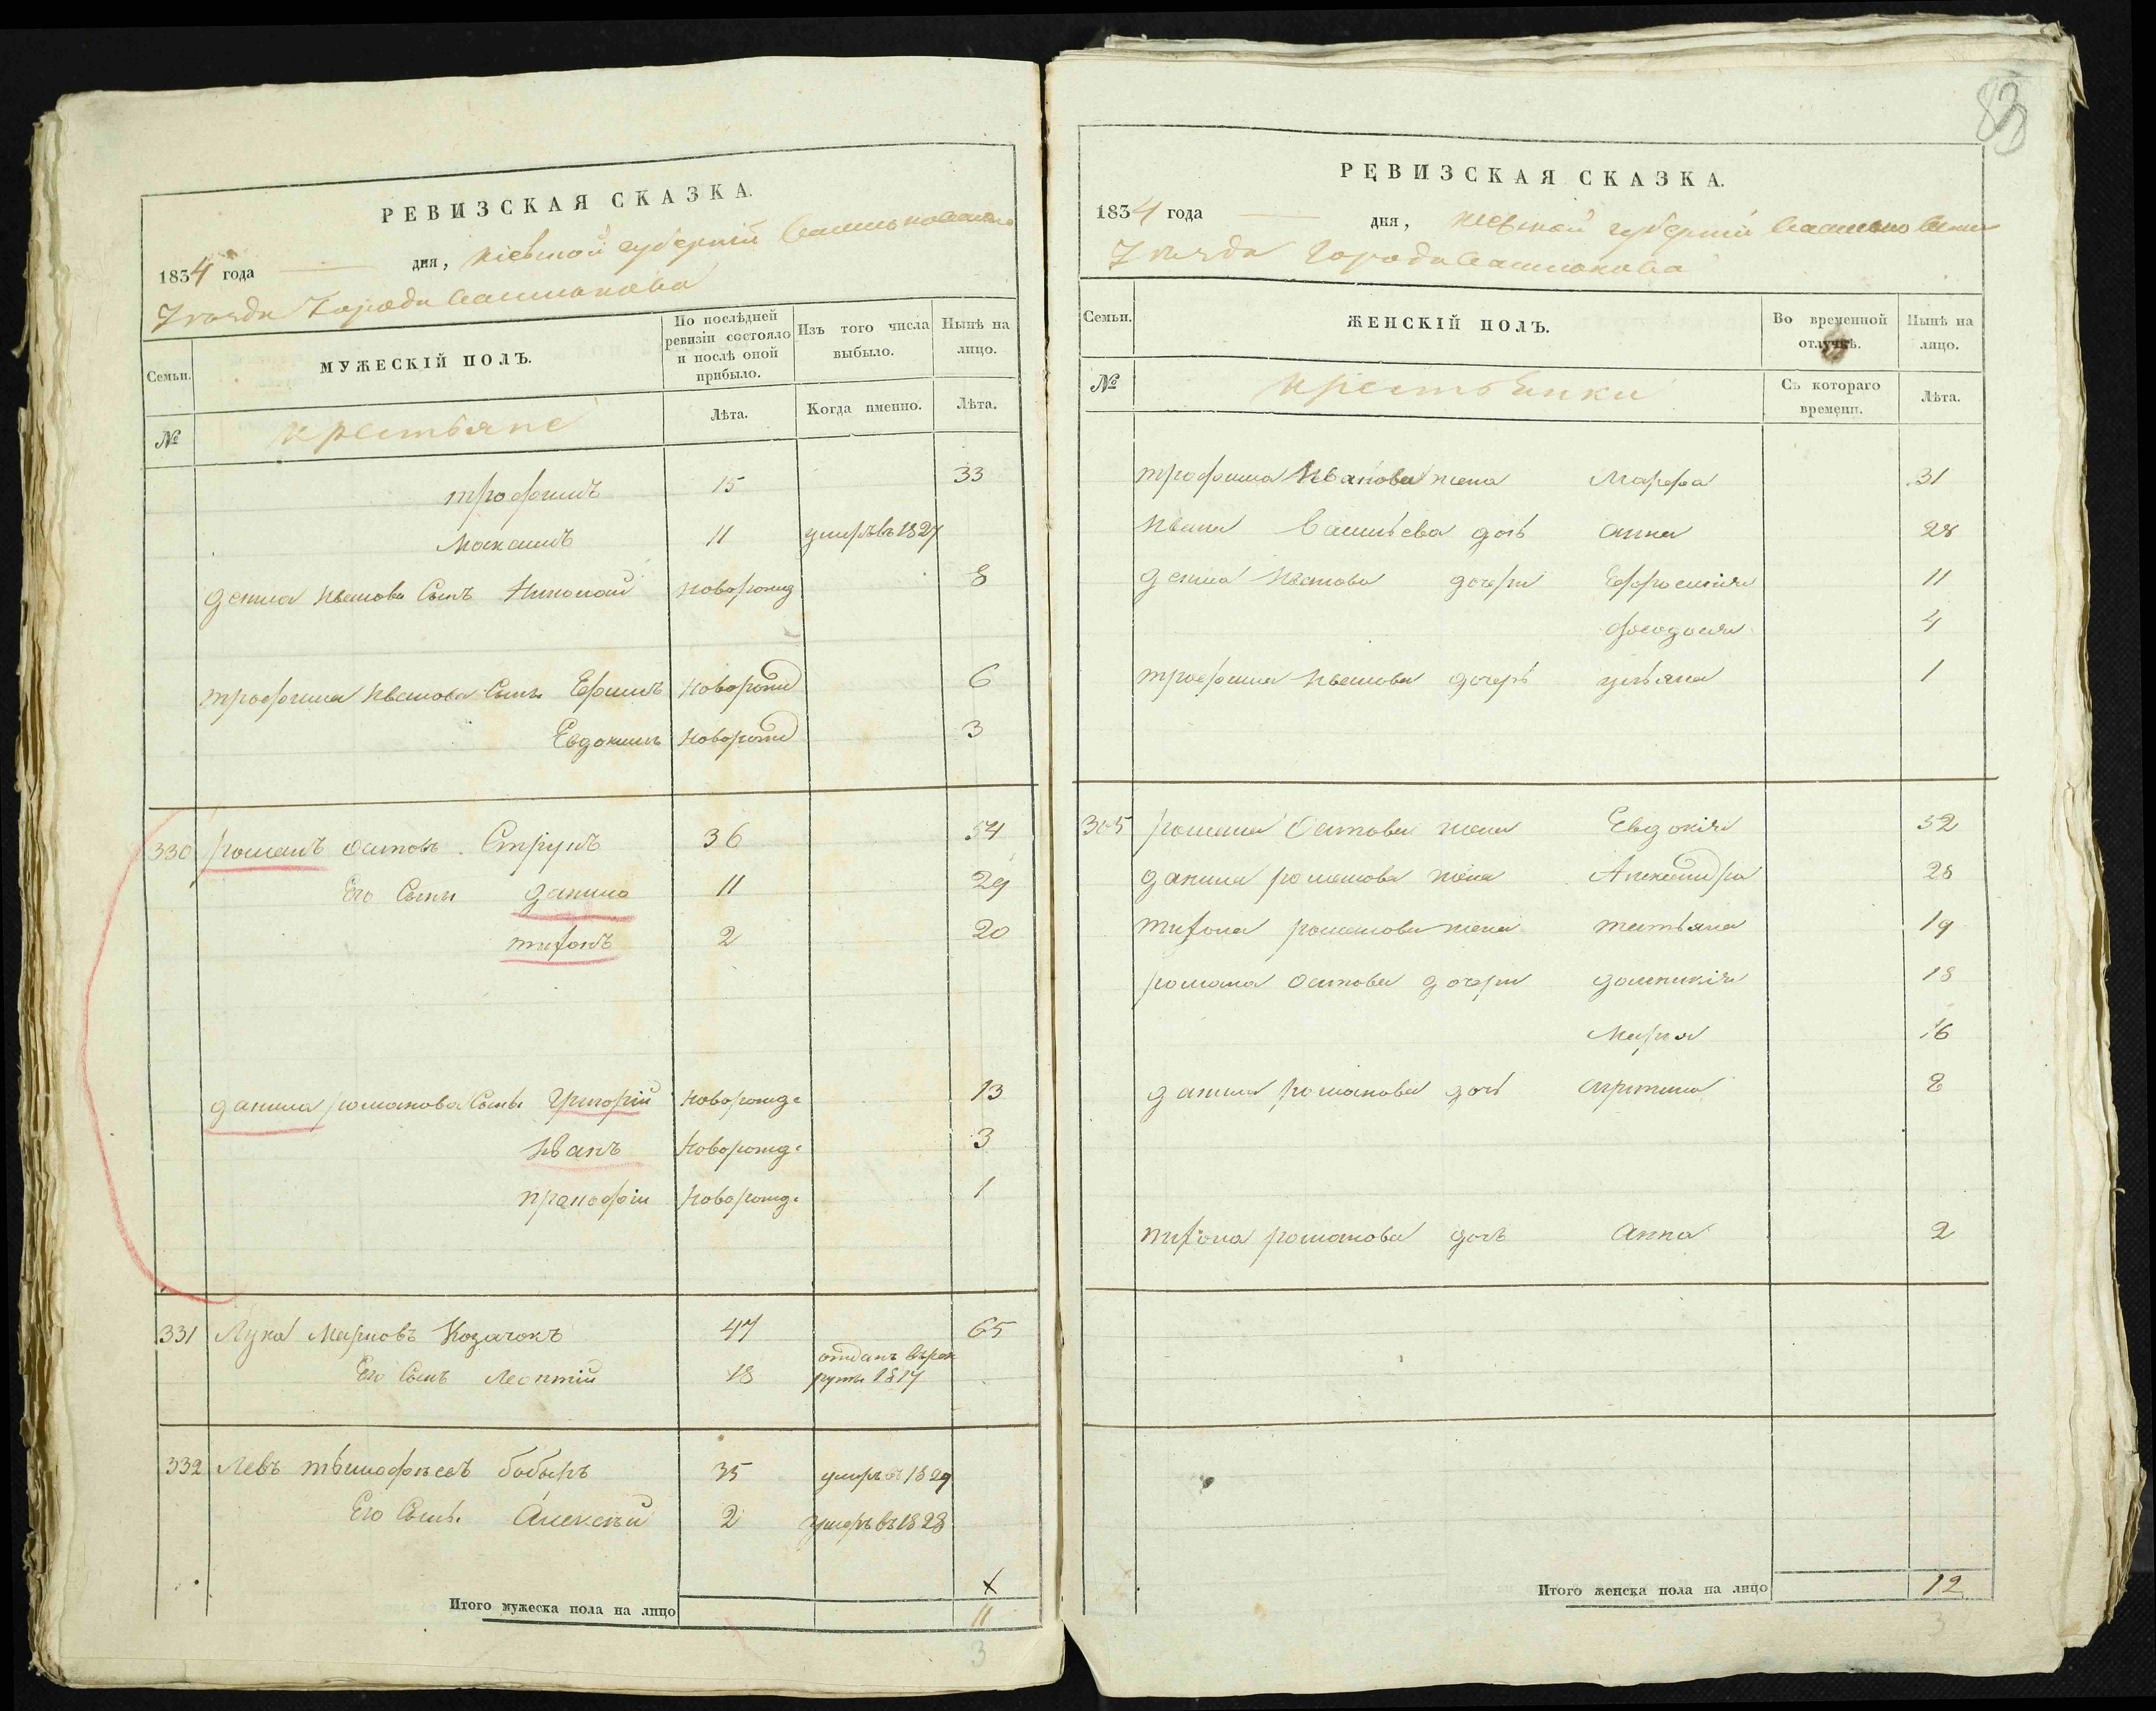 РЕВИЗСКАЯ СКАЗКА.
1834 года дня, Кіевской губерніи Васильковскаго
Уезда Города Василькова
Семьи.
МУЖЕСКІЙ ПОЛЪ.
По послѣдней ревизіи состояло и послѣ оной прибыло.
Изъ того числа выбыло.
Нынѣ на лицо.
№
крестьяне
Лѣта.
Когда именно.
Лѣта.
трофимъ 15 33
Максимъ 11 умеръ въ 1827
Иванова Сынъ Николай новорожд 8
трофима Иванова Сынъ Ефимъ новорожд 6
Евдокимъ новорожд 3
330 романъ Осиповъ Струкъ 36 54
Его Сыны данило 11 29
тихонъ 2 20
данила романова Сыны Григорій новорожд: 13
Иванъ новорожд: 3
новорожд: 1
331 Лука Марковъ Козачокъ 47 65
Его Сынъ Леонтій 18 отданъ въ рек
руты 1817
332 Левъ тимофеевъ бобыръ 35 умеръ въ 1829
Его Сынъ Алексѣй 2 умеръ въ 1828
х
Итого мужеска пола на лицо 11
3
83
РЕВИЗСКАЯ СКАЗКА.
1834 года дня, Кіевской губерніи Васильковскаго
Уезда Города Василькова
Семьи.
ЖЕНСКІЙ ПОЛЪ.
Во временной отлучкѣ.
Нынѣ на лицо.
№
крестьянки
Съ котораго времени.
Лѣта.
трофима Иванова жена Марфа 31
Ивана Васильева дочь анна 28
Иванова дочери Ефросинія 11
феодосія 4
трофима Иванова дочерь ульяна 1
305 романа Осипова жена Евдокія 52
данила романова жена Александра 28
тихона романова жена татьяна 19
романа Осипова дочери домникія 18
Марья 16
данила романова дочь 8
тихона романова дочь анна 2
Итого женска пола на лицо 12
3